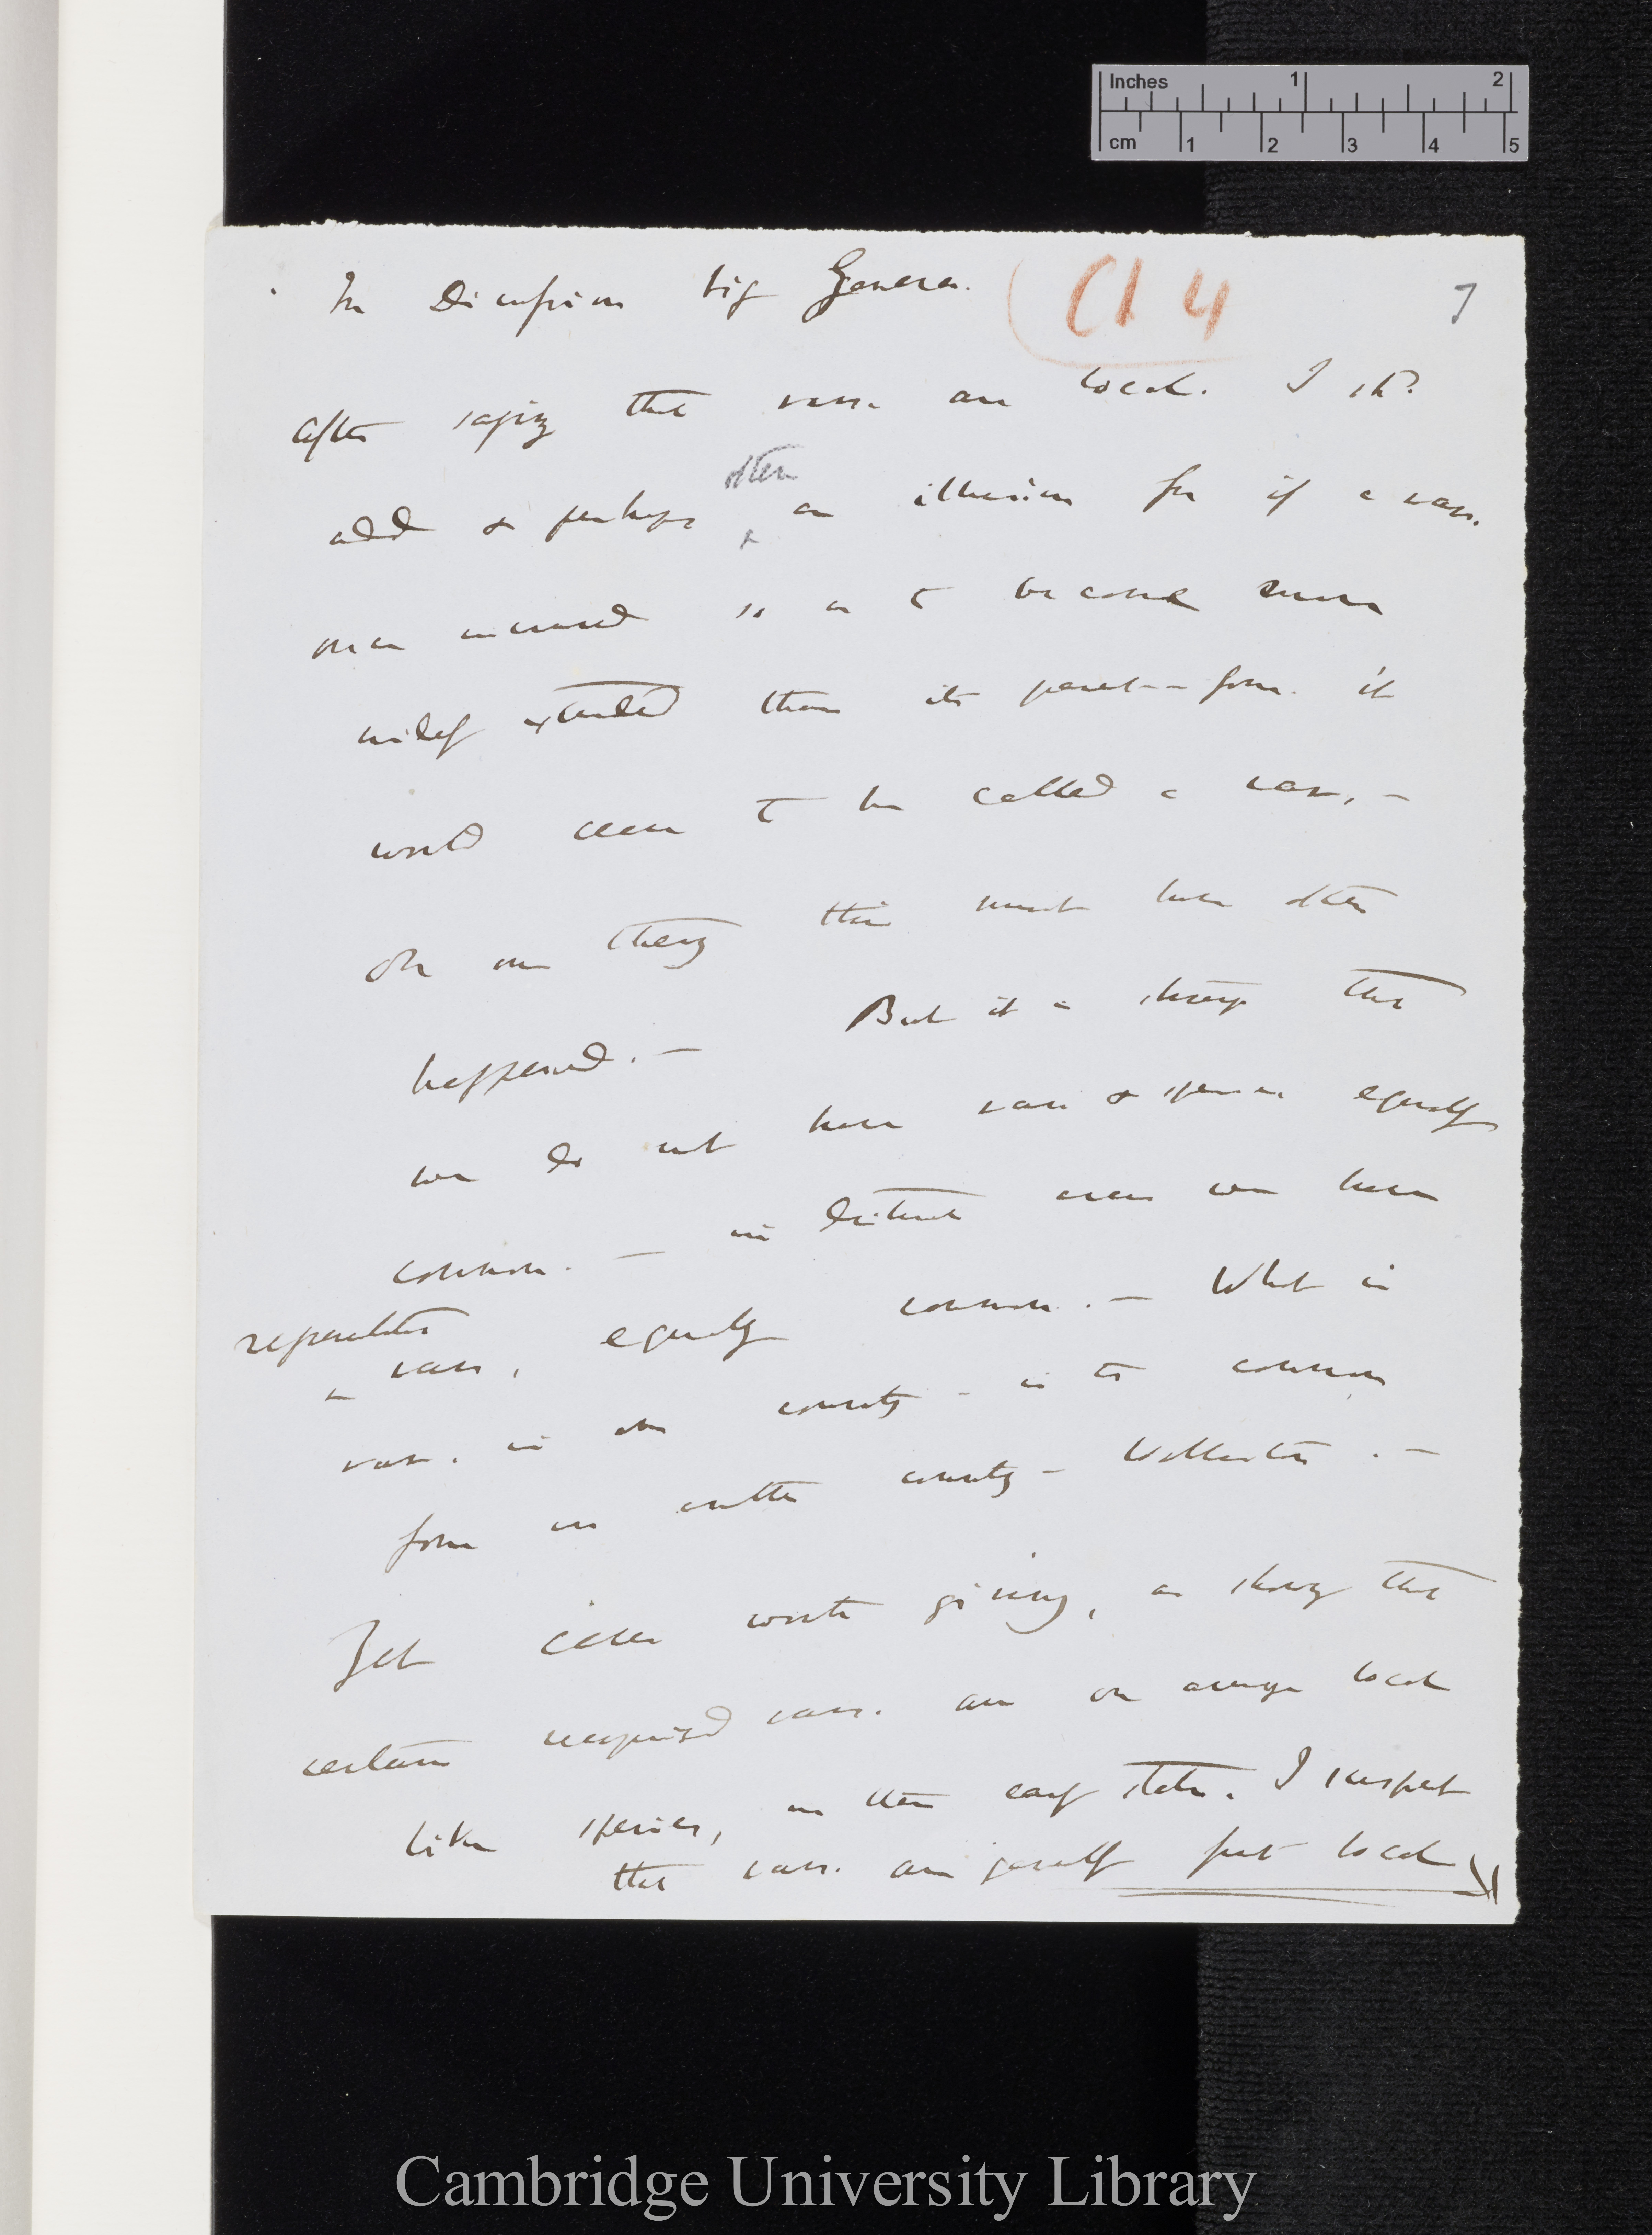 Inches 1 2
cm 1 2 3 4 5
In Discussion big Genera. Ch 4 7
After saying that vars. are local. I shd
add & perhaps often an illusion for if a var.
once increased so as to become more
widely extended than its parent-form. it
would cease to be called a var. —
On our theory this must have often
happened. — But it is strange that
we do not have vars & species equally
common. — in distinct areas we have
representative vars, equally common. — What is
var. in one country - is the common
form in another country - Wollaston. —
Yet cases worth giving, as showing that
certain recognised vars. are on average local
like species, in their early state. I suspect
that vars. are generally first local
Cambridge University Library